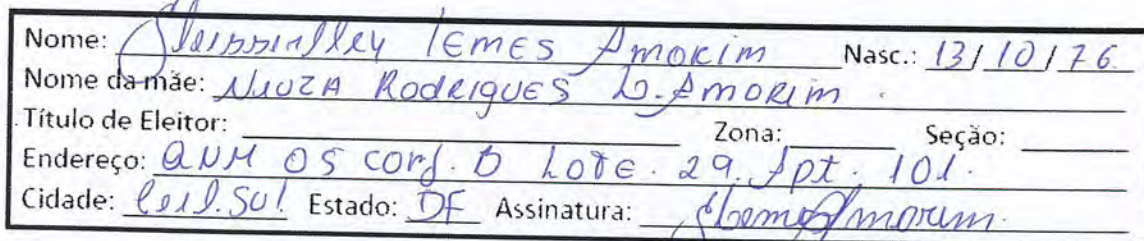 Nome: lemes Amorim Nasc.: 13/10/76
Nome da mãe: Neuza Rodrigues L. Amorim.
Título de Eleitor: Zona: Seção:
Endereço: QNM 05 conj. D Lote. 29. Apt. 101.
Cidade: Ceil.Sul Estado: DF Assinatura: Amorim